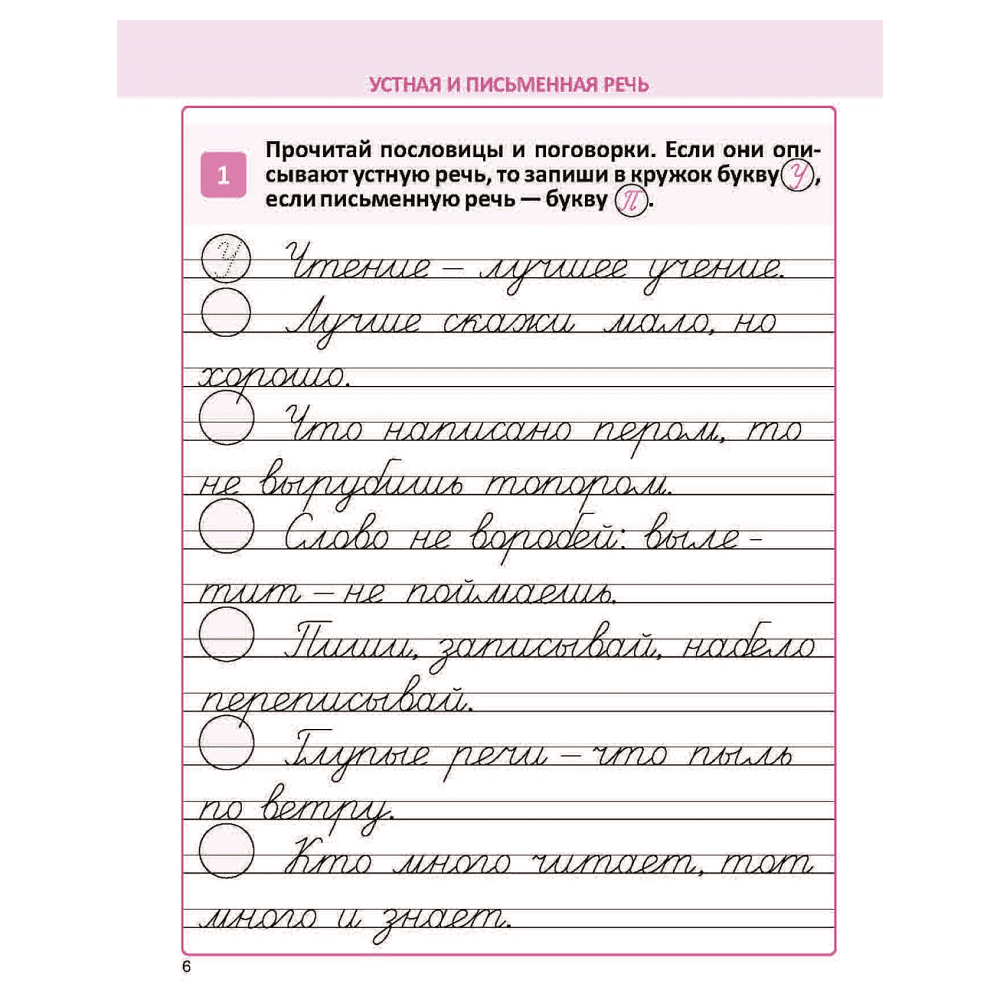 УСТНАЯ И ПИСЬМЕННАЯ РЕЧЬ
1
Прочитай пословицы и поговорки. Если они опи-
сывают устную речь, то запиши в кружок букву У,
если письменную речь — букву П.
У Чтение – лучшее учение.
Лучше скажи мало, но
хорошо.
Что написано пером, то
не вырубишь топором.
Слово не воробей: выле-
тит – не поймаешь.
Пиши, записывай, набело
переписывай.
Глупые речи – что пыль
по ветру.
Кто много читает, тот
много и знает.
6